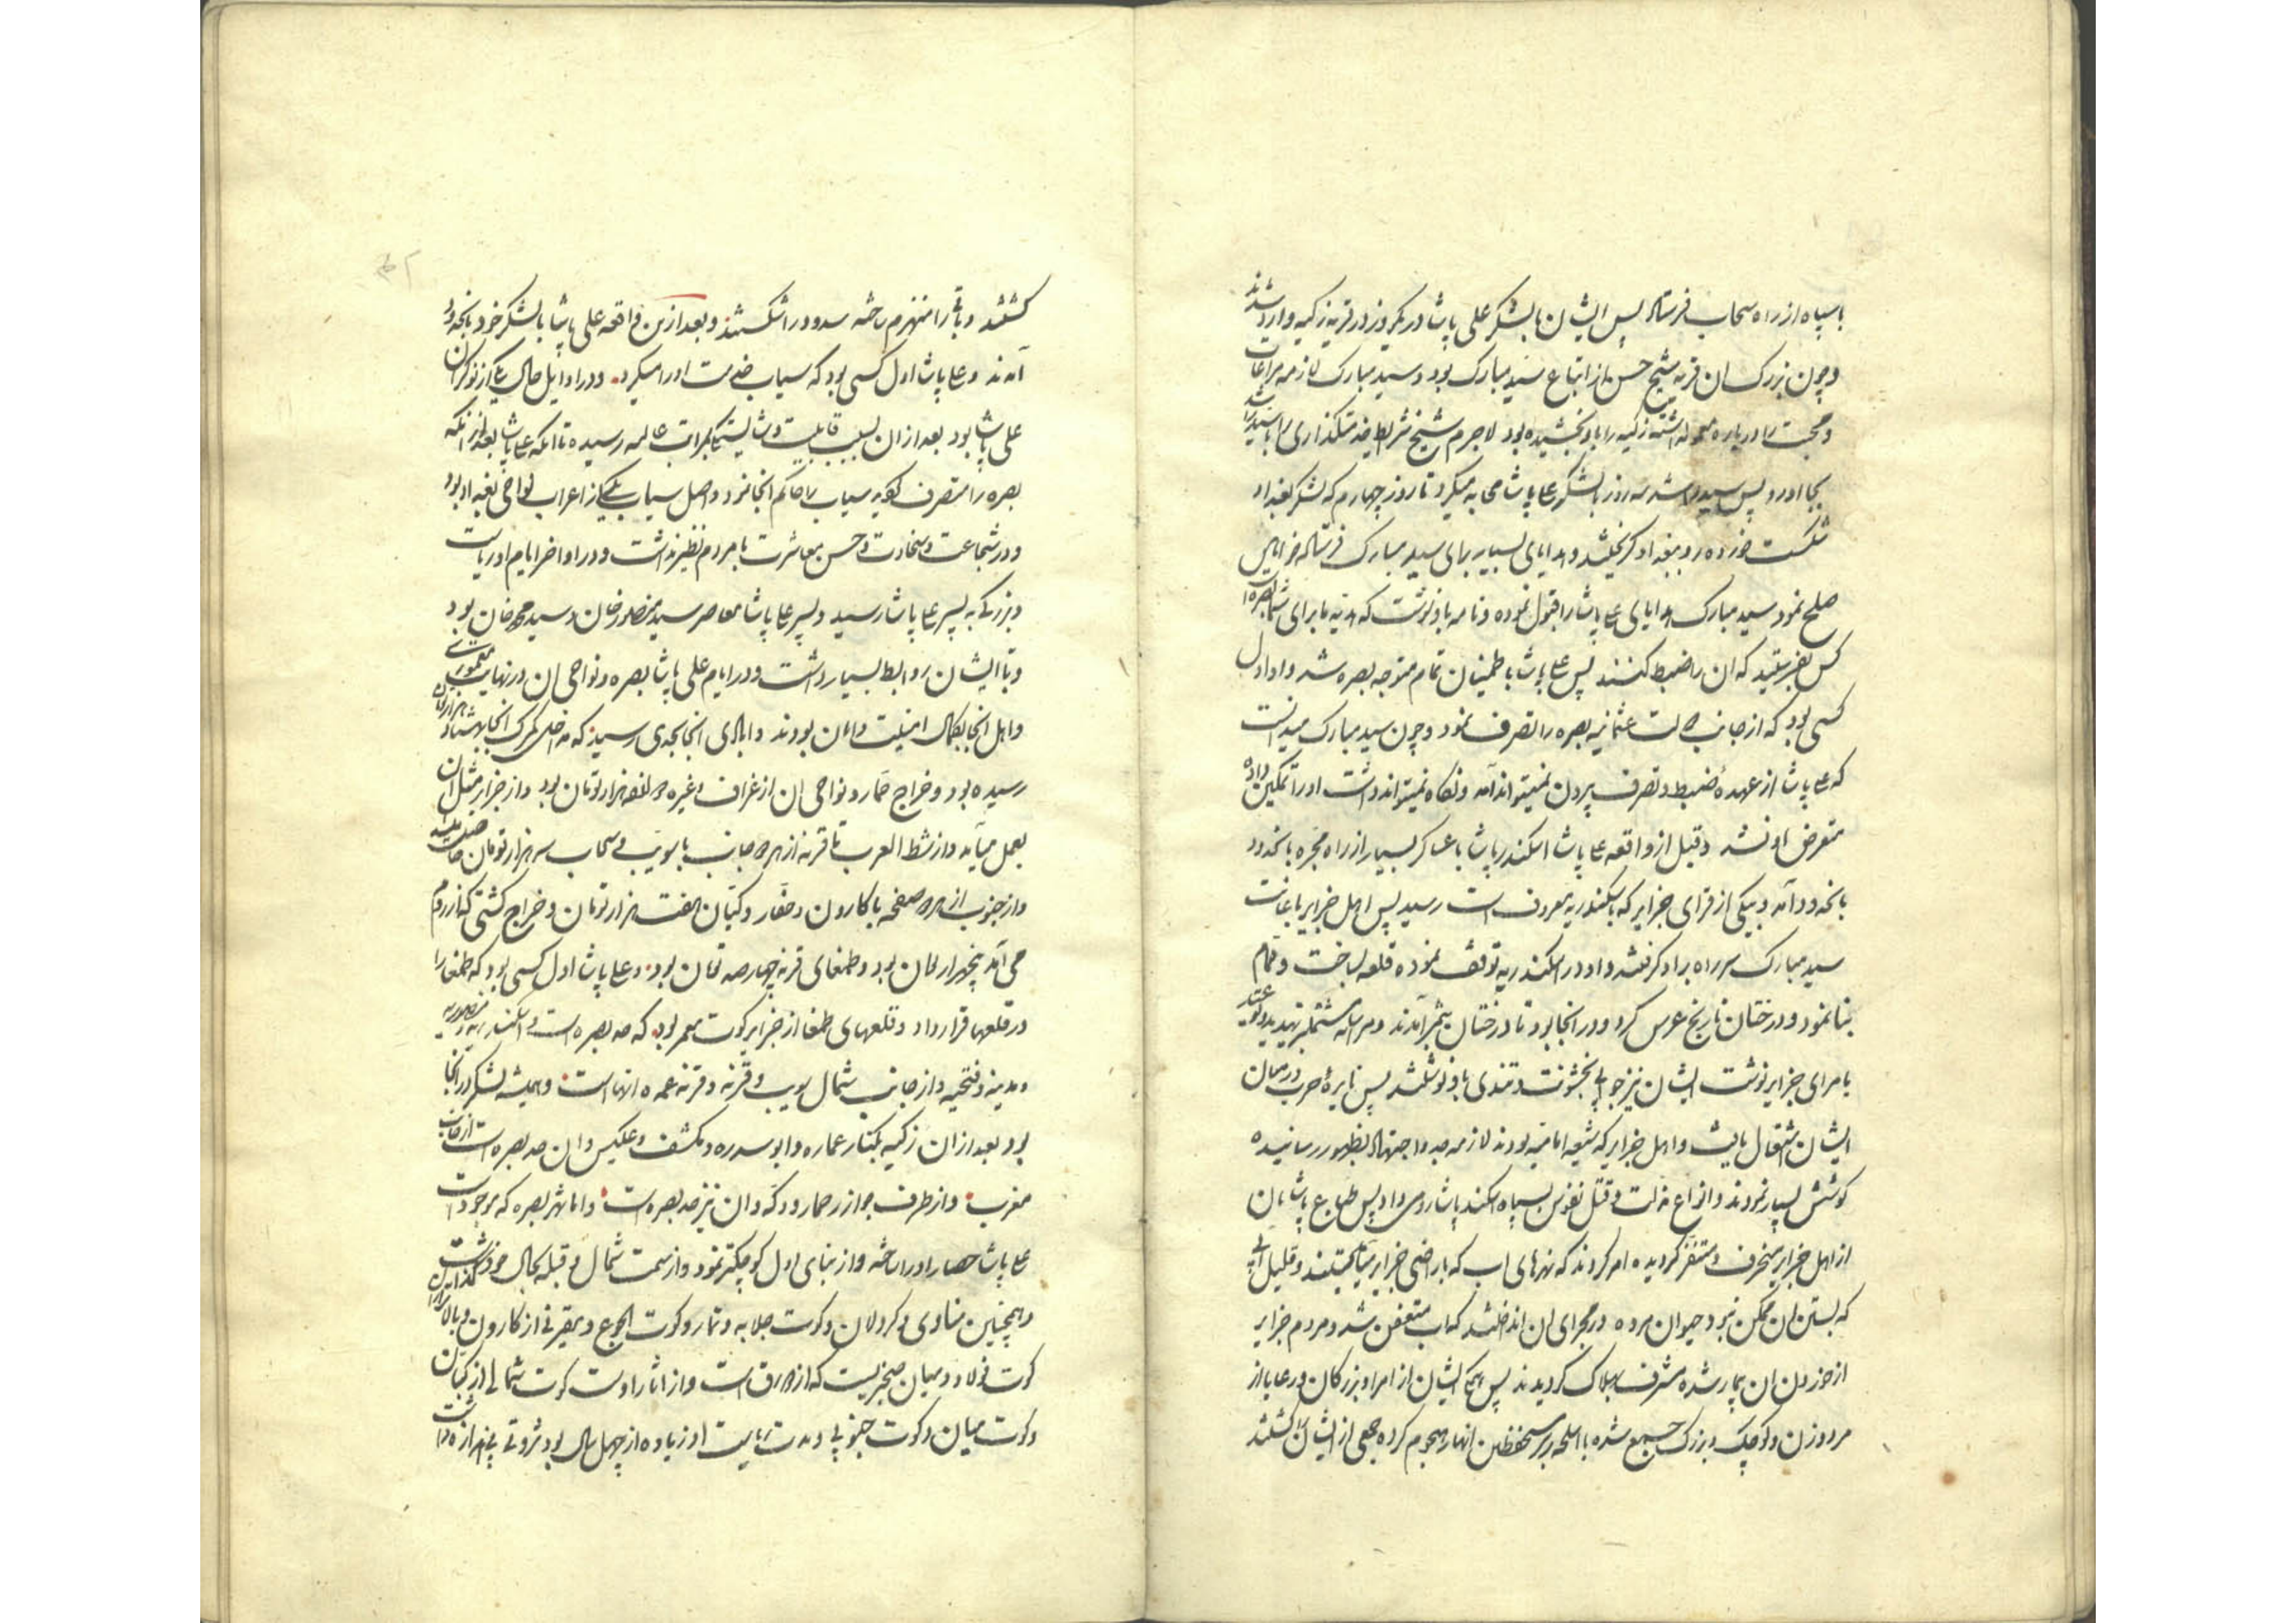 با سپاه از راه سحاب فرستاد پس ایشان با لشکر علی پاشا در یکروز در قریه زکیه وارد شدند
و چون بزرک ان قریه شیخ حسن از اتباع سید مبارک بود و سید مبارک لازمه مراعات
و محبت را درباره داشته زکیه را باو بخشیده بود لاجرم شیخ شرایط خدمتکذاری را
بجا اورد پس سید راشد سه روز با لشکر علی پاشا محاربه میکرد تا روز چهارم که لشکر بغداد
شکست خورده رو ببغداد کریختند و هدایای بسیار برای سید مبارک فرستاد
صلح نمود سید مبارک هدایای علی پاشا را قبول نموده و نامه باو نوشت که
کس بفرستید که ان را ضبط کنند پس علی پاشا باطمینان تمام متوجه بصره شد و او اول
کسی بود که از جانب دولت عثمانیه بصره را تصرف نمود و چون سید مبارک میدانست
که علی پاشا از عهده ضبط و تصرف بیرون نمیتواند آمد و نکاه نمیتواند داشت او را تمکین داده
متعرض او نشد و قبل از واقعه علی پاشا اسکندر پاشا با عساکر بسیار از راه مجره بانحدود
بانحدود آمد و بیکی از قرای جزایر که باسکندریه معروف است رسید پس اهل جزایر باعانت
سید مبارک سر راه بر او کرفتند و او در اسکندریه توقف نموده قلعه بساخت و حمام
بنا نمود و درختان نارنج غرس کرد و در انجا بود تا درختان بثمر آمدند و مراسله مشتمل بر تهدید و
بامرای جزایر نوشت ایشان نیز جوابی بخشونت و تندی باو نوشتند پس نایره حرب در میان
ایشان اشتعال یافت و اهل جزایر که شیعه امامیه بودند لازمه جد و اجتهاد بظهور رسانیده
کوشش بسیار نمودند و انواع مذلت و قتل نفوس بسپاه اسکندر پاشا روی داد پس طباع پاشایان
از اهل جزایر منحرف و متنفر کردیده امر کردند که نهرهای اب که باراضی جزایر میریختند و قلیل ابی
که بستن ان ممکن نبود حیوان مرده در مجرای ان انداختند که اب متعفن شد و مردم جزایر
از خوردن ان بیمار شده مشرف بهلاک کردیدند پس همکی ایشان از امرا و بزرکان و رعایا از
مرد و زن و کوچک و بزرک جمیع شده با اسلحه بر سر مستحفظین انهار هجوم کرده جمعی از ایشان را کشتند
کشتند و باقی را منهزم ساخته سدود را شکستند و بعد ازین واقعه علی پاشا با لشکر خود بانحدود
آمدند و علی پاشا اول کسی بود که سیاب خدمت او را میکرد و در اوایل حال یکی از نوکران
علی پاشا بود بعد از ان بسبب قابلیت و شایستکی بمراتب عالیه رسیده تا انکه علی پاشا بعد از انکه
بصره را متصرف کردید سیاب را حاکم انجا نمود و اصل سیاب یکی از اعراب نواحی بغداد بود
و در شجاعت و سخاوت و حسن معاشرت با مردم نظیر نداشت و در اواخر ایام او ریاست
و بزرکی به پسر علی پاشا رسید و پسر علی پاشا معاصر سید منصور خان و سید محمد خان بود
و با ایشان روابط بسیار داشت و در ایام علی پاشا بصره و نواحی ان در نهایت معموری
و اهل انجا بکمال امنیت و امان بودند و ابادی انجا بحدی رسید که مداخل کمرک انجا بهشتاد
رسیده بود و خراج حمار و نواحی ان از غراف و غیره دوازده هزار تومان بود و از جزایر مثل ان
بعمل میآمد و از شط العرب تا قرنه از هر دو جانب با سویب و سحاب سه هزار تومان
و از جنوب از هر دو صفحه با کارون و حفار و کبان هفت هزار تومان و خراج کشتی کنار روم
می آمد پنجهزار تومان بود و طمغای قرنه چهارصد تومان بود و علی پاشا اول کسی بود که طمغا را
در قلعها قرار داد و قلعهای طمغا از جزایر کوت معمر بود که حد بصره است و اسکندریه و منصوریه
و مدینه و فتحیه و از جانب شمال سویب و قرنه و قرنه عمده انهاست و همیشه لشکر در انجا
بود بعد از ان زکیه بکنار عماره و ابو سدره و مکشف و ان حد بصره است از جانب
مغرب و از طرف جوازر حمار و دکه و ان نیز حد بصره است و اما شهر بصره که موجود است
علی پاشا حصار او را ساخته و از بنای اول کوچکتر نمود و از سمت شمال و قبله بحال خود کذاشت
و همچنین مناوی و کردلان و کوت جلابه و تمار و کوت الجوع و از کارون و بالا
کوت فولاد و میان است که از دورق است و از اثار اوست کوت شمالی از کبان
و کوت میان و کوت جنوبی و مدت ریاست او زیاده از چهل سال بود و ثروتی بی اندازه داشت